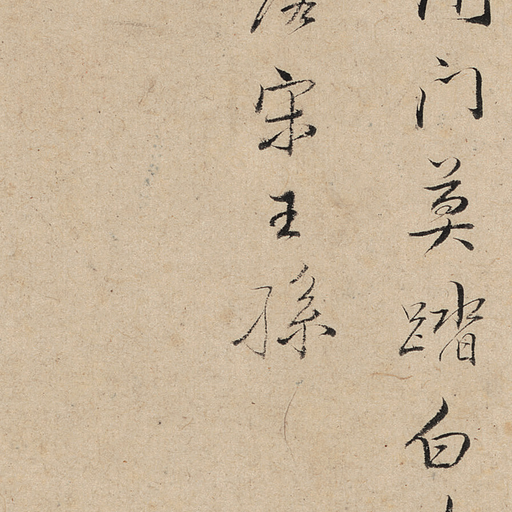 门莫踏白
宋王孫